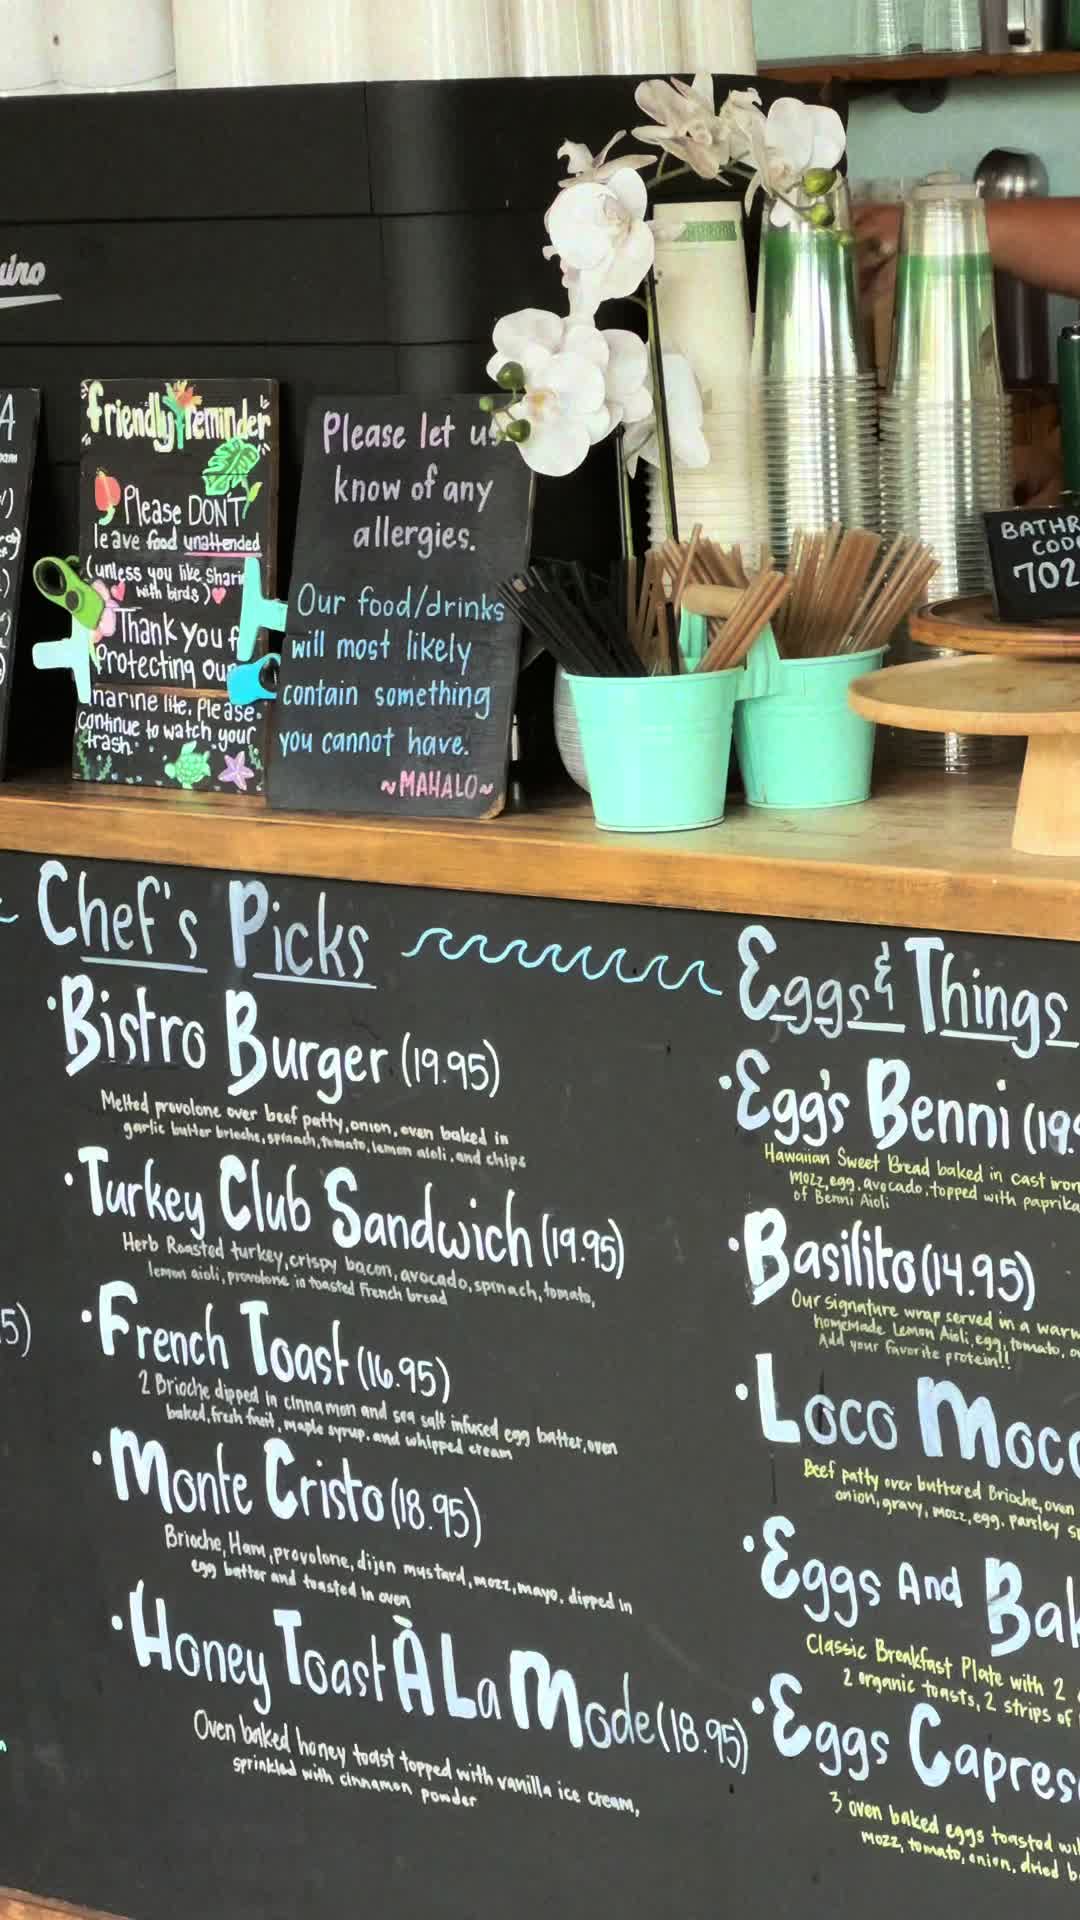 friendly reminder
Please DON'T
leave food unattended
(unless you like
with birds)
Thank you
Protecting
marine life. Please
continue to watch your
trash.
Please let us
know of any
allergies.
Our food/drinks
will most likely
contain something
you cannot have.
~MAHALO~
CODE
702
Chef's Picks
• Bistro Burger (19.95)
Melted provolone over beef patty, onion, oven baked in
garlic butter brioche, spinach, tomato, lemon aioli, and chips
• Turkey Club Sandwich (19.95)
Herb Roasted turkey, crispy bacon, avocado, spinach, tomato,
lemon aioli, provolone in toasted French bread
• French Toast (16.95)
2 Brioche dipped in cinnamon and sea salt infused egg batter, oven
baked, fresh fruit, maple syrup, and whipped cream
• Monte Cristo (18.95)
Brioche, Ham, provolone, dijon mustard, mozz, mayo, dipped in
egg batter and toasted in oven
• Honey Toast À La Mode (18.95)
Oven baked honey toast topped with vanilla ice cream,
sprinkled with cinnamon powder
Eggs & Things
• Egg's Benni (19.9
Hawaiian Sweet Bread baked in cast iron
mozz, egg, avocado, topped with paprika
of Benni Aioli
• Basilito (14.95)
Our signature wrap served in a warm
homemade Lemon Aioli, egg, tomato,
Add your favorite protein!!
• Loco Moco
Beef patty over buttered Brioche, oven
onion, gravy, mozz, egg, parsley
• Eggs And
Classic Breakfast Plate with 2
2 organic toasts, 2 strips of
• Eggs
3 oven baked eggs toasted
mozz, tomato, onion, dried